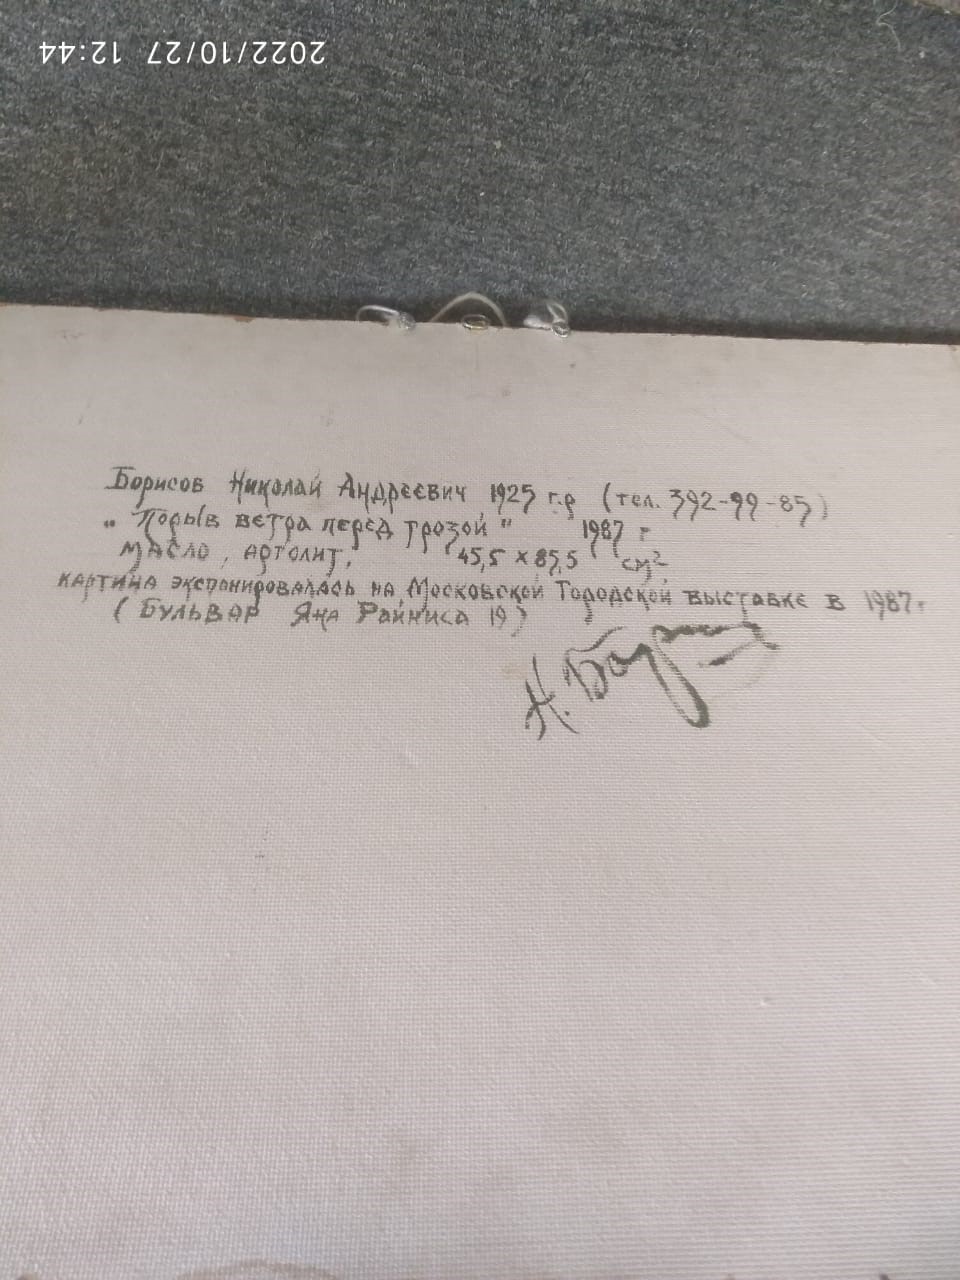 2022/10/27 12:44
Борисов Николай Андреевич 1925 г.р (тел. 392-99-85)
„ Порыв ветра перед грозой " 1987 г
масло, артолит, 45,5 х 85,5 см²
картина экспонировалась на Московской Городской выставке в 1987г.
(Бульвар Яна Райниса 19)
Н. Бор